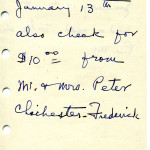 January 13th
also check for
$10.00 from
Mr. & Mrs. Peter
Chichester-Frederick